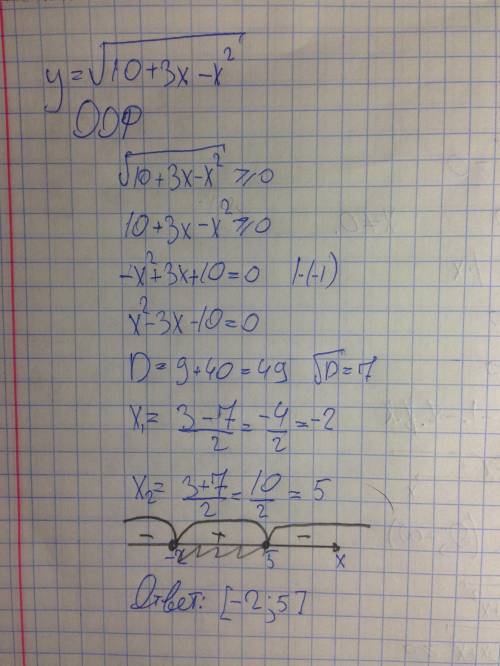 y = √10+3x-x²
ООФ
√10+3x-x² ⩾0
10+3x-x² ⩾0
-x²+3x+10=0 |·(-1)
x²-3x-10=0
D=9+40=49 √D=7
x₁= 3-7/2 = -4/2 = -2
x₂= 3+7/2 = 10/2 = 5
- + -
-2 5 x
Ответ: [-2;5]